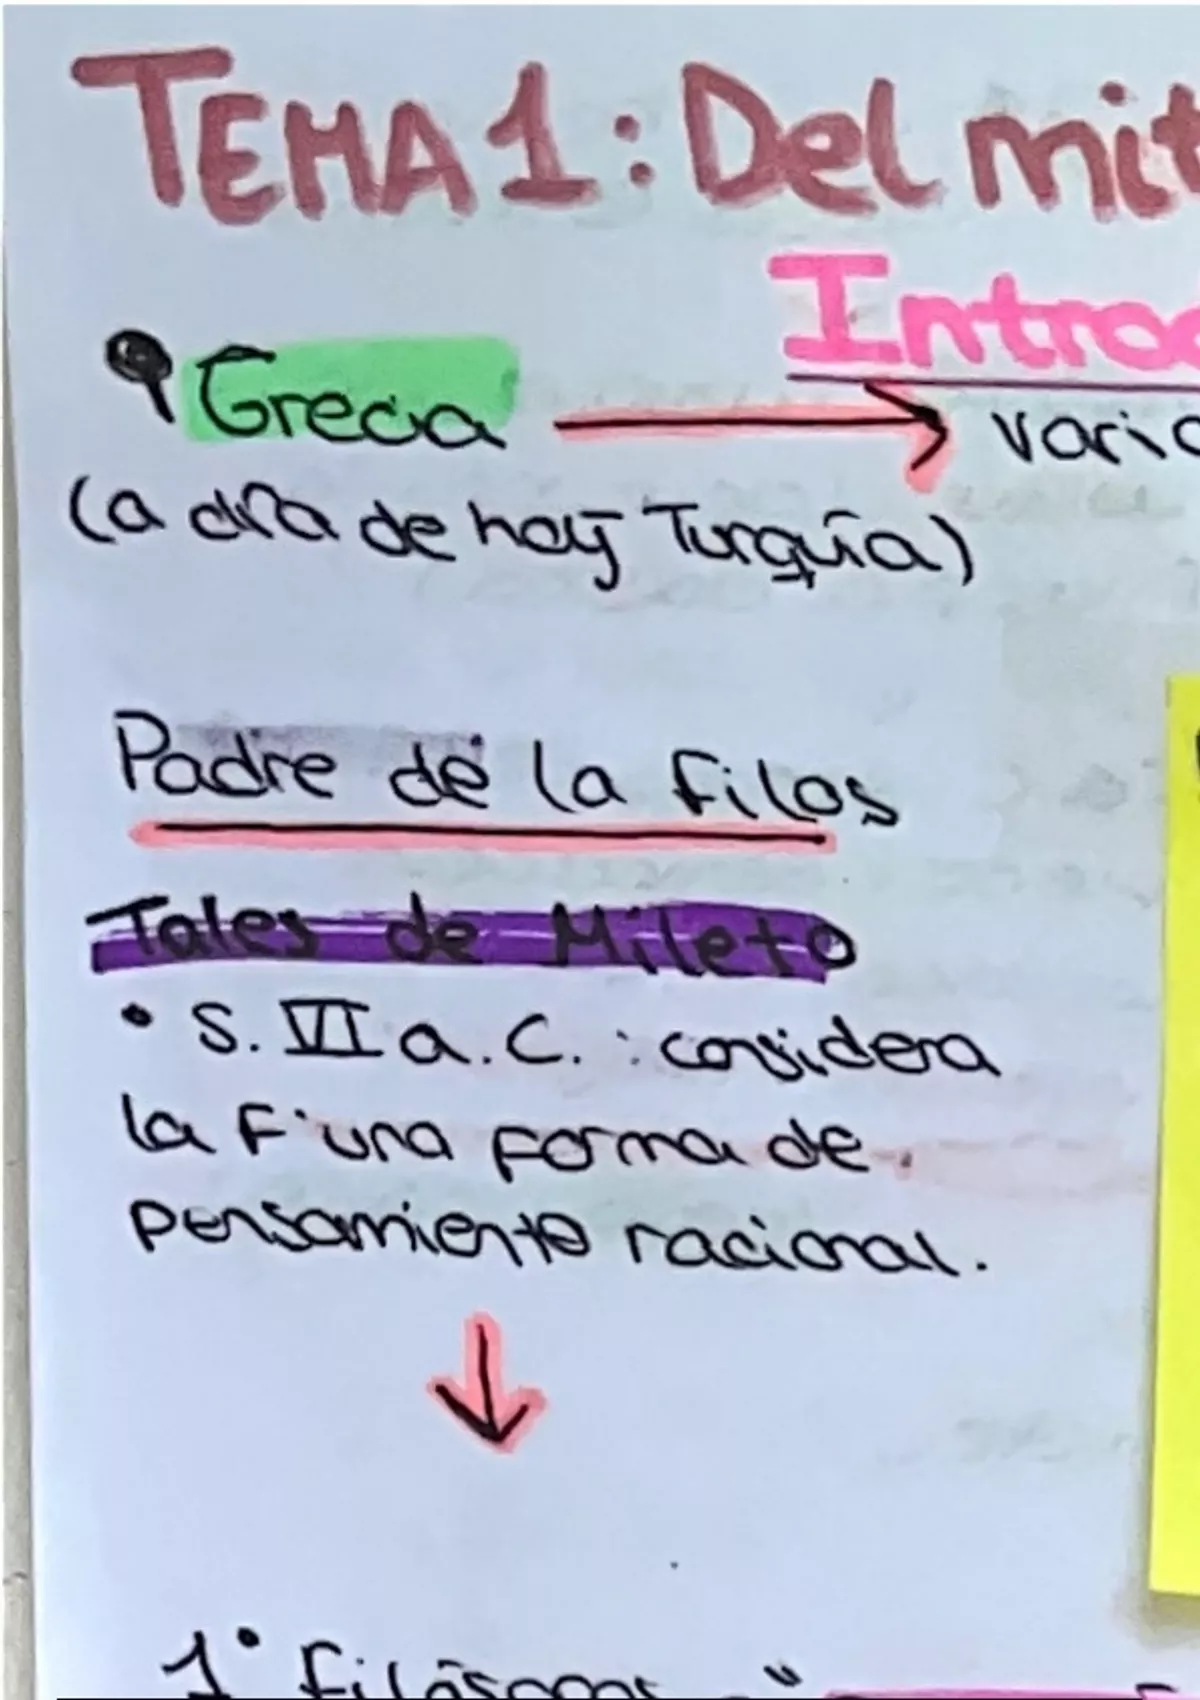 TEMA 1: Del mit
Introd
Grecia → vario
(a día de hoy Turquía)
Padre de la filos
Tales de Mileto
• S. VI a.C. : considera
la F· una forma de
pensamiento racional.
↓
1° filósofos